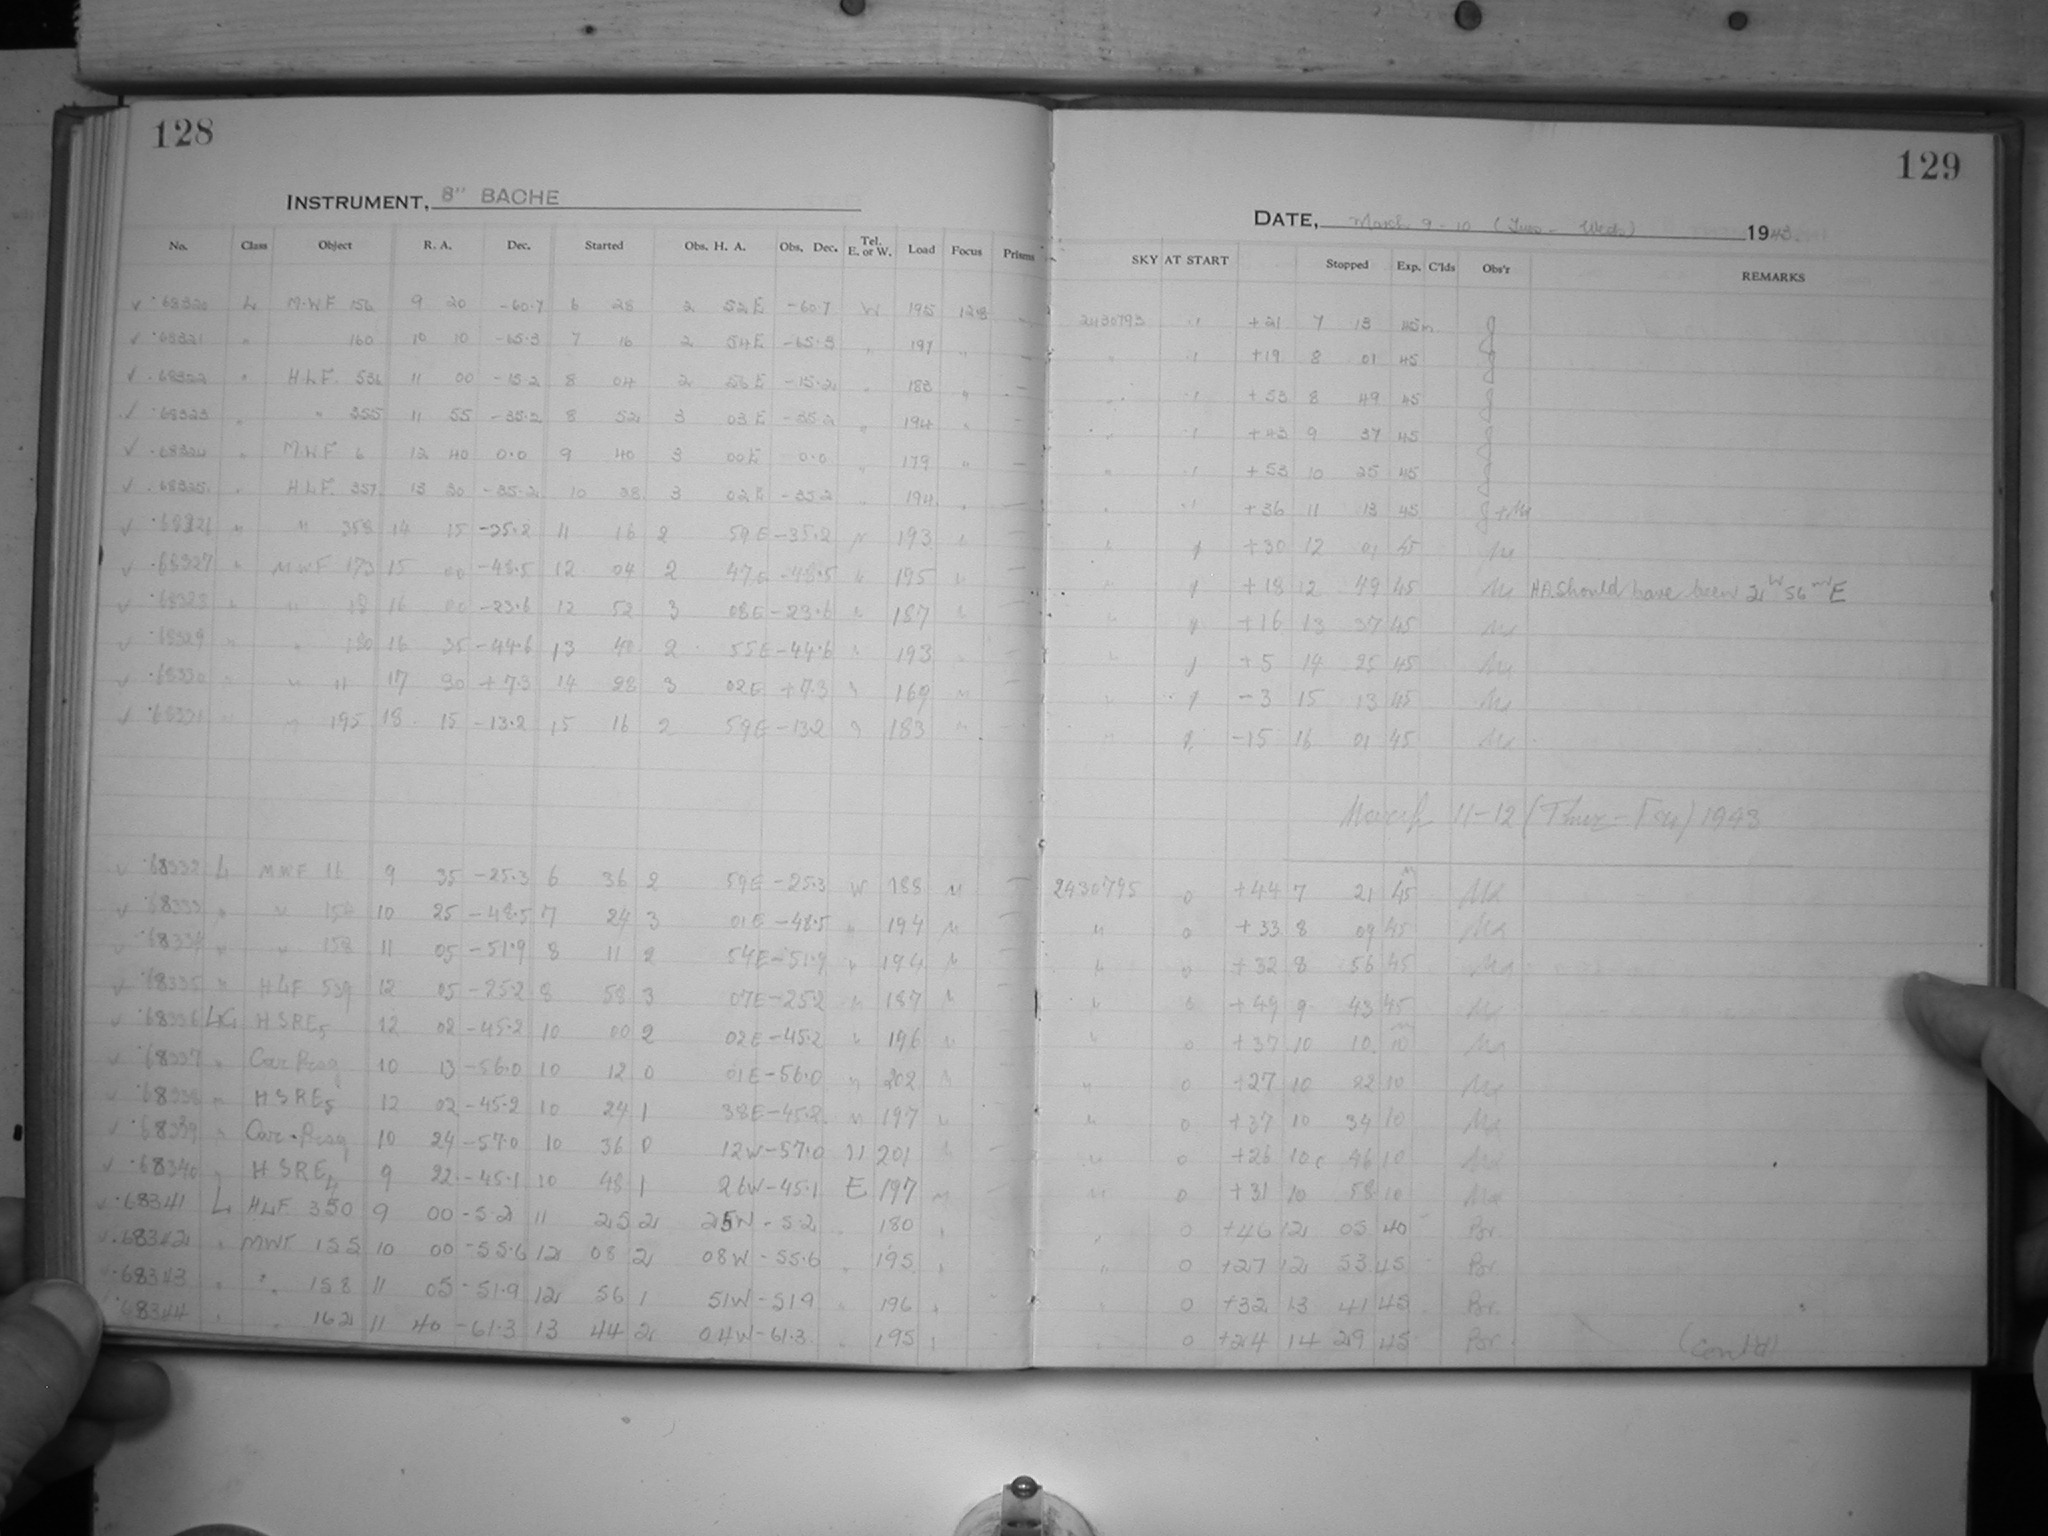 128
INSTRUMENT, 8" BACHE
No. Class Object R. A. Dec. Started Obs. H. A. Obs. Dec. Tel. E. or W. Load Focus Prisms
68320 L M.W.F 156 9 20 -60.7 6 28 2 52E -60.7 W 195 12.8 –
68321 " 160 10 10 -65.3 7 16 2 54E -65.3 " 197 " –
68322 " H.L.F. 536 11 00 -15.2 8 04 2 56E -15.2 " 183 " –
68323 " " 355 11 55 -35.2 8 52 3 03E -35.2 " 194 "
68324 " M.W.F 6 12 40 0.0 9 40 3 00E 0.0 " 179 " –
68325 " H.L.F. 357 13 30 -35.2 10 28 3 02E -35.2 " 194 " –
68326 " " 358 14 15 -35.2 11 16 2 59E -35.2 " 193 " –
68327 " MWF 173 15 00 -48.5 12 04 2 47E -48.5 " 195 " –
68328 " " 18 16 00 -23.6 12 52 3 08E -23.6 " 187 " –
68329 " " 180 16 35 -44.6 13 40 2 55E -44.6 " 193
68330 " " 11 17 30 +7.3 14 28 3 02E +7.3 " 169 " –
68331 " " 195 18 15 -13.2 15 16 2 59E -13.2 " 183 "
68332 L MWF 16 9 35 -25.3 6 36 2 59E -25.3 W 188 " –
68333 " " 154 10 25 -48.5 7 24 3 01E -48.5 " 194 " –
68334 " " 158 11 05 -51.9 8 11 2 54E -51.9 " 194 " –
68335 " HLF 539 12 05 -25.2 8 58 3 07E -25.2 " 187 " –
68336 LG HSRE5 12 02 -45.2 10 00 2 02E -45.2 " 196 " –
68337 " Car 10 13 -56.0 10 12 0 01E -56.0 " 202 " –
68338 " HSRE5 12 02 -45.2 10 24 1 38E -45.2 " 197 " –
68339 " Car 10 24 -57.0 10 36 0 12W -57.0 " 201 " –
68340 " HSRE4 9 22 -45.1 10 48 1 26W -45.1 E 197 " –
68341 L HLF 350 9 00 -5.2 11 25 2 25W -5.2 180 "
68342 " MWF 155 10 00 -55.6 12 08 2 08W -55.6 " 195 "
68343 " " 158 11 05 -51.9 12 56 1 51W -51.9 " 196 "
68344 " " 162 11 40 -61.3 13 44 2 04W -61.3 " 195 "
129
DATE, March 9-10 (Tues - Wed) 1943.
SKY AT START Stopped Exp. C'lds Obs'r REMARKS
2430793 +21 7 13 45m g
" +19 8 01 45 g
" +53 8 49 45 g
" +43 9 37 45 g
" +53 10 25 45 g
+36 11 13 45 g + Ma
" +30 12 01 45 Ma
" +18 12 49 45 Ma HA should have been 2h 56m E
" +16 13 37 45 Ma
" +5 14 25 45 Ma
" -3 15 13 45 Ma
" -15 16 01 45 Ma
March 11-12 (Thur - Fri) 1943
2430795 0 +44 7 21 45m Ma
" 0 +33 8 09 45 Ma
" 0 +32 8 56 45 Ma
" 0 +49 9 43 45 Ma
" 0 +37 10 10 10m Ma
" 0 +27 10 22 10 Ma
" 0 +37 10 34 10 Ma
" 0 +26 10 46 10 Ma
" 0 +31 10 58 10 Ma
" 0 +46 12 05 40 Br.
" 0 +27 12 53 45 Br.
" 0 +32 13 41 45 Br.
" 0 +24 14 29 45 Br.
(Cont'd)